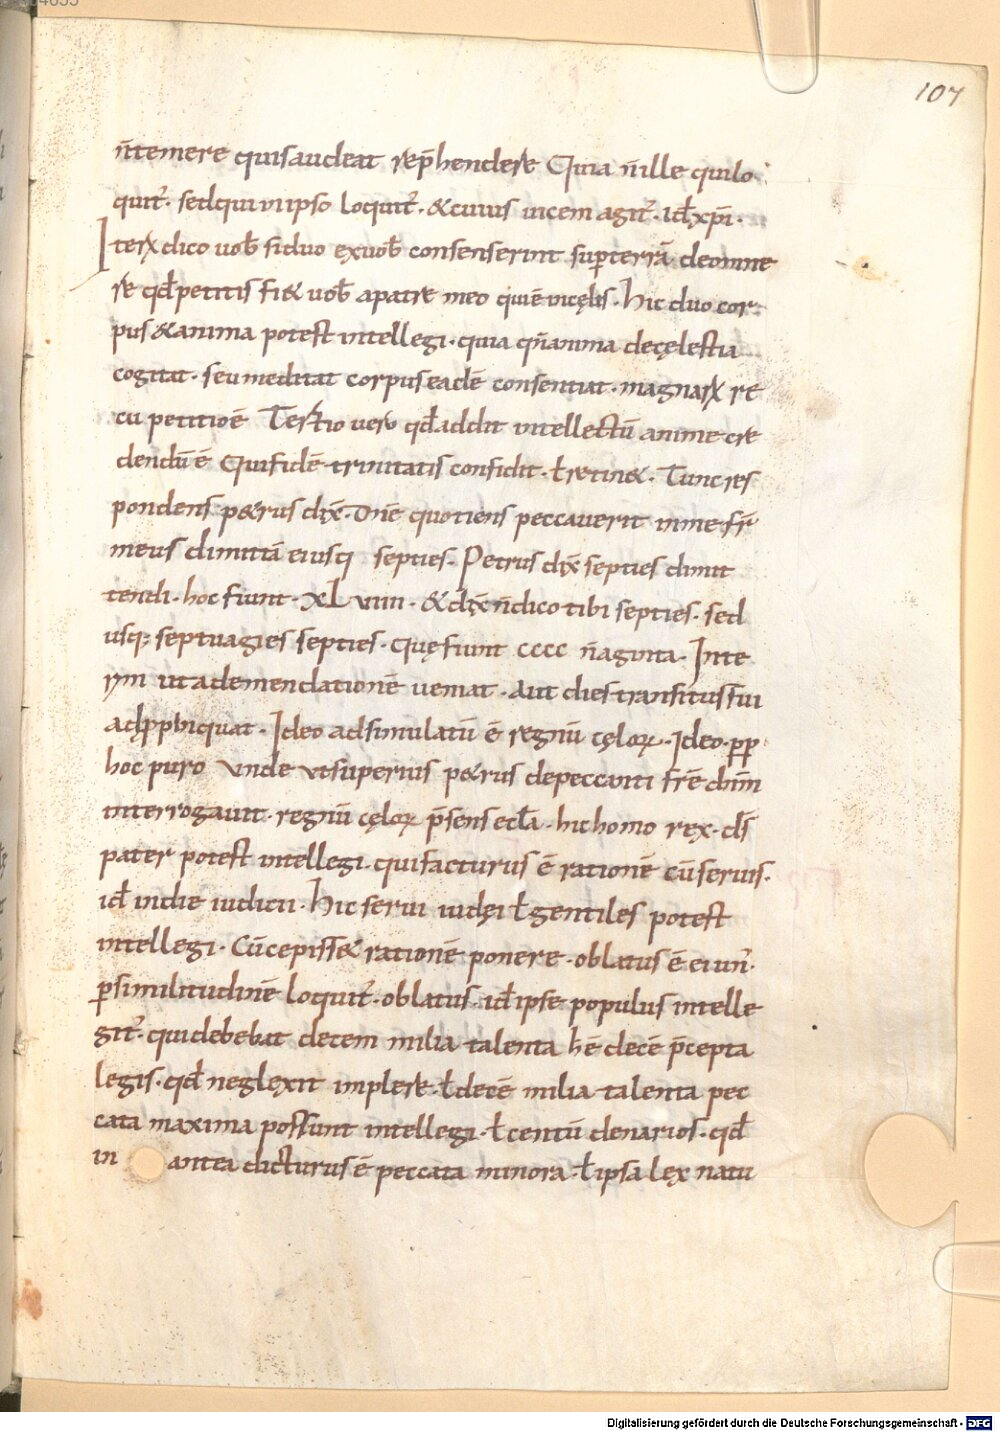 107
n̄temere quisaudeat rep̄hendere Quia n̄ ille quilo
quit̄. sedqui in ipso loquit̄. &cuius uicem agit̄. id xp̄i.
Iterū dico uob̄ siduo exuob̄ consenserint sup̄terrā deomne
re qd̄petitis fi& uob̄ apatre meo qui ē incęlis. hic duo cor
pus &anima potest intellegi. quia qn̄anima decęlestia
cogitat. seu meditat corpus eadē consentiat. magnarū re
cū petitio ē Tertio uero qd̄addit intellectū anime cre
dendū ē Qui fidē trinitatis confidit. ł retin&. Tunc res
pondens p&rus dix̄. Dn̄e quotiens peccauerit in me fr̄
meus dimittā ei usq septies. Petrus dix̄ septies dimit
tendi. hoc fiunt. XL uiiii. &dix̄ n̄dico tibi septies. sed
usq; septuagies septies. Quę fiunt cccc n̄aginta. Inte
rim ut ademendationē ueniat. aut dies transitus sui
ad p̄pinquat. Ideo adsimulatū ē regnū cęloꝝ. Ideo. pp
hoc puro unde ut superius p&rus depeccanti fr̄e dn̄m
interrogauit. regnū cęloꝝ p̄sens eccl̄a. hic homo rex. ds̄
pater potest intellegi. qui facturus ē rationē cū seruis.
id̄ indie iudicii. hic serui iudęi ł gentiles potest
intellegi. Cū cepiss& rationē ponere. oblatus ē ei un̄.
p̄ similitudinē loquit̄. oblatus. id̄ ipse populus intelle
git̄. qui debebat decem milia talenta h̄ ē decē p̄cepta
legis. qd̄ neglexit implere. ł decē milia talenta pec
cata maxima possunt intellegi. ł centū denarios. qd̄
in antea dicturus ē peccata minora. ł ipsa lex natu
Digitalisierung gefördert durch die Deutsche Forschungsgemeinschaft - DFG